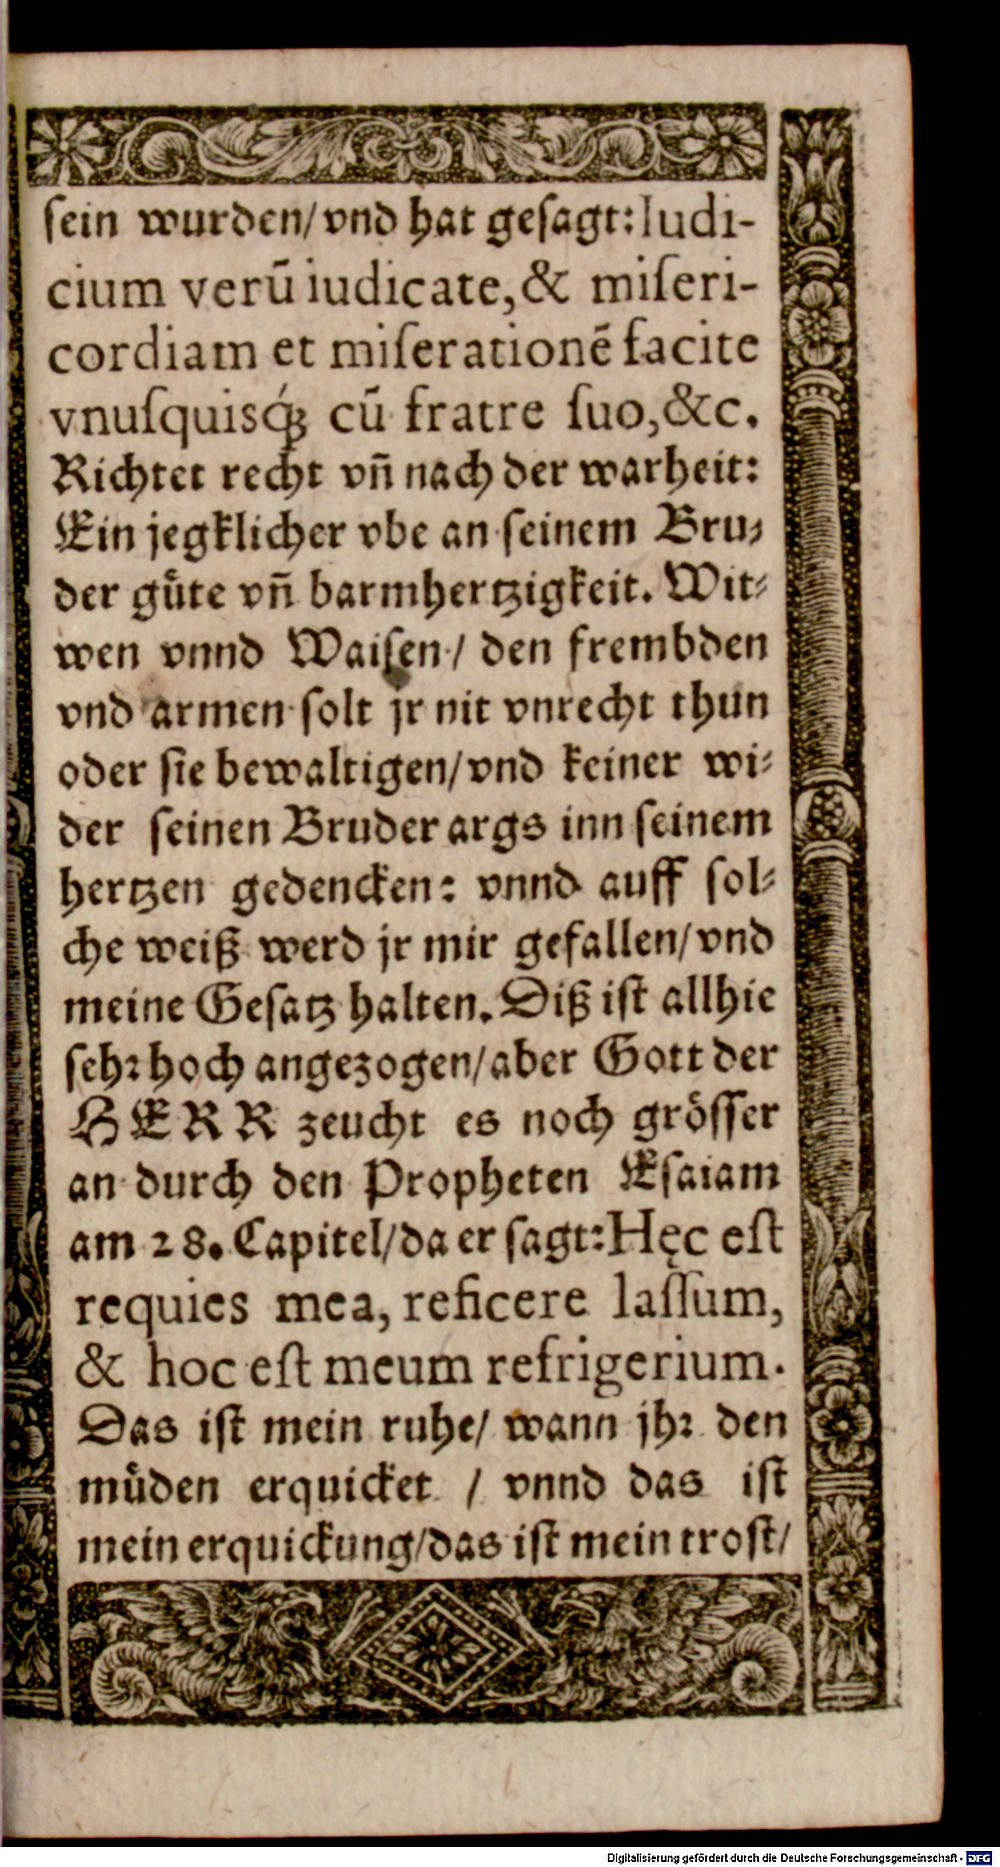 sein wurden/ vnd hat gesagt: Iudi-
cium verũ iudicate, & miſeri-
cordiam et miſerationẽ facite
vnuſquisq́ꝫ cũ fratre ſuo, &c.
Richtet recht vñ nach der warheit:
Ein jegklicher vbe an seinem Bru⸗
der guͤte vñ barmhertzigkeit. Wit⸗
wen vnnd Waiſen / den frembden
vnd armen solt jr nit vnrecht thun
oder sie bewaltigen/ vnd keiner wi⸗
der seinen Bruder args inn seinem
hertzen gedencken: vnnd auff sol⸗
che weiß werd jr mir gefallen/ vnd
meine Geſatz halten. Diß iſt allhie
sehꝛ hoch angezogen/ aber Gott der
HERR zeucht es noch groͤſſer
an durch den Propheten Eſaiam
am 28. Capitel/ da er ſagt: Hęc eſt
requies mea, reficere laſſum,
& hoc eſt meum refrigerium.
Das iſt mein ruhe/ wann jhꝛ den
muͤden erquicket / vnnd das iſt
mein erquickung/ das iſt mein troſt/
Digitalisierung gefördert durch die Deutsche Forschungsgemeinschaft - DFG